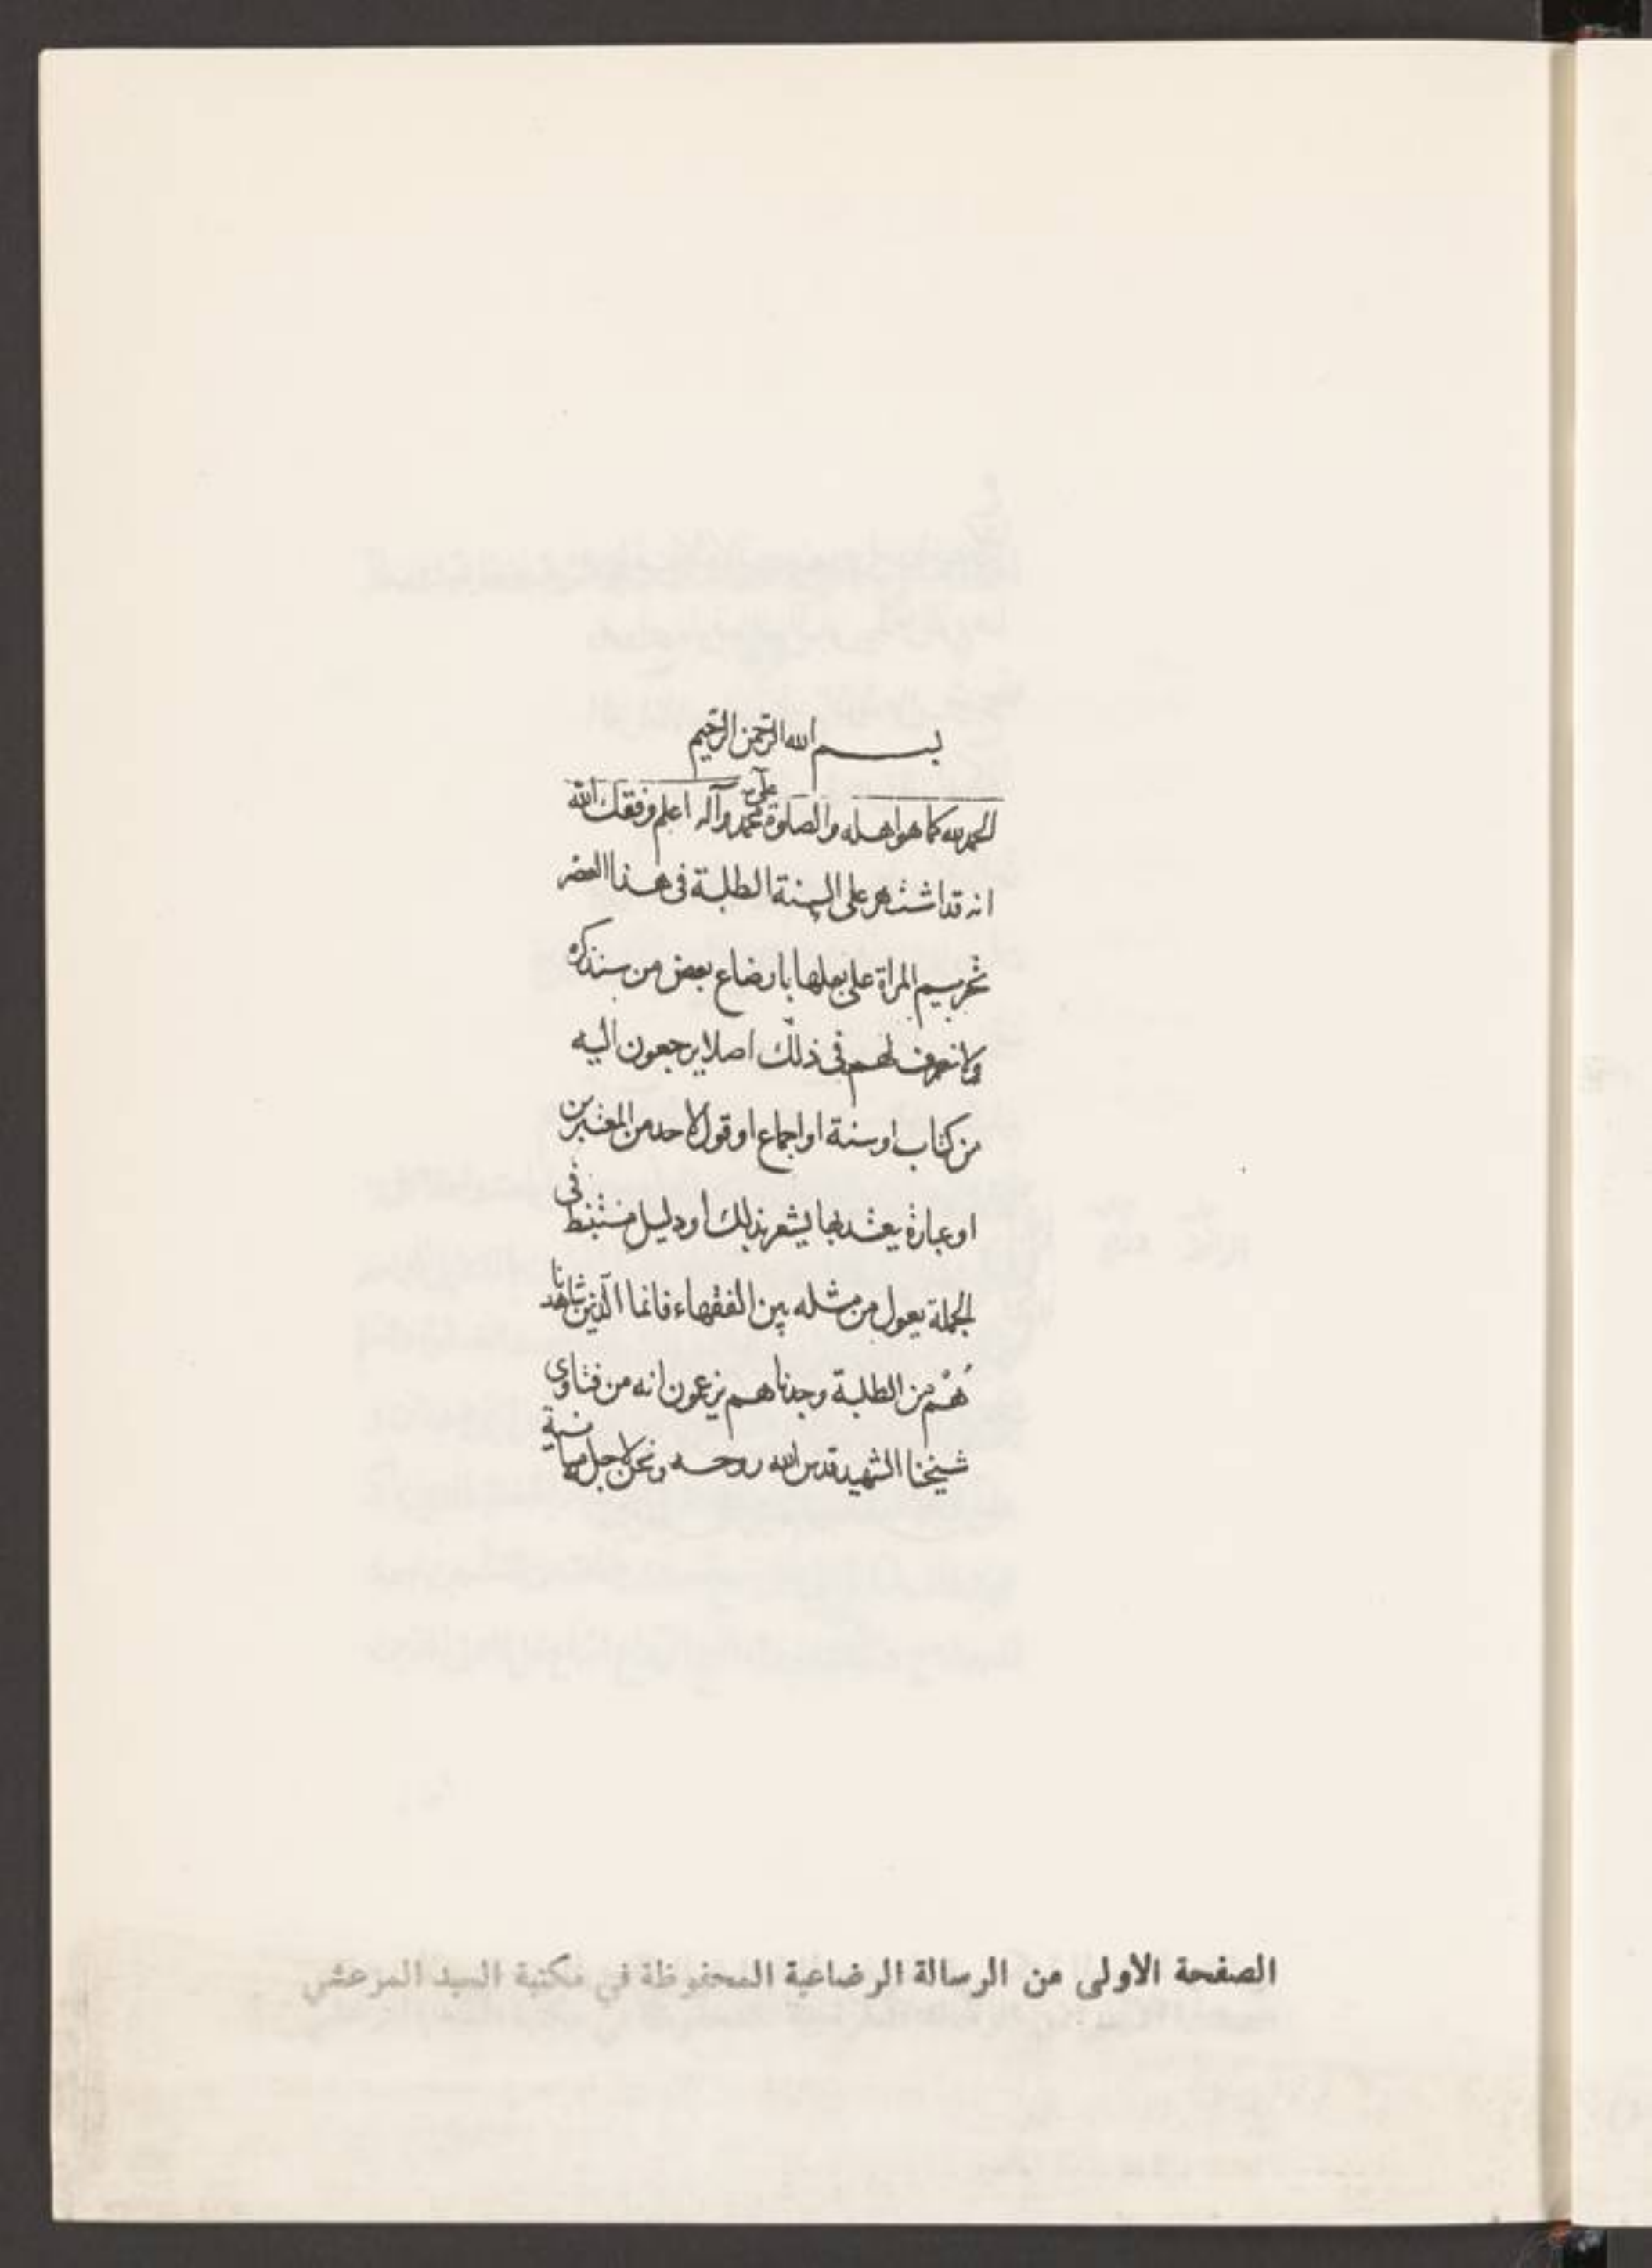 بسم الله الرحمن الرحيم
الحمد لله كما هو اهله والصلوة على محمد وآله اعلم وفقك الله
انه قد اشتهر على السنة الطلبة فى هذا العصر
تحريم المراة على بعلها بارضاع بعض من سنذكره
ولا نعرف لهم فى ذلك اصلا يرجعون اليه
من كتاب او سنة او اجماع او قول لاحد من المعتبرين
او عبارة يعتد بها يشعر بذلك او دليل مستنبط فى
الجملة يعول من مثله بين الفقهاء فانما الذين شاهدنا
هم من الطلبة وجدناهم يزعمون انه من فتاوى
شيخنا الشهيد قدس الله روحه ونحن لاجل مباينة
الصفحة الاولى من الرسالة الرضاعية المحفوظة في مكتبة السيد المرعشي